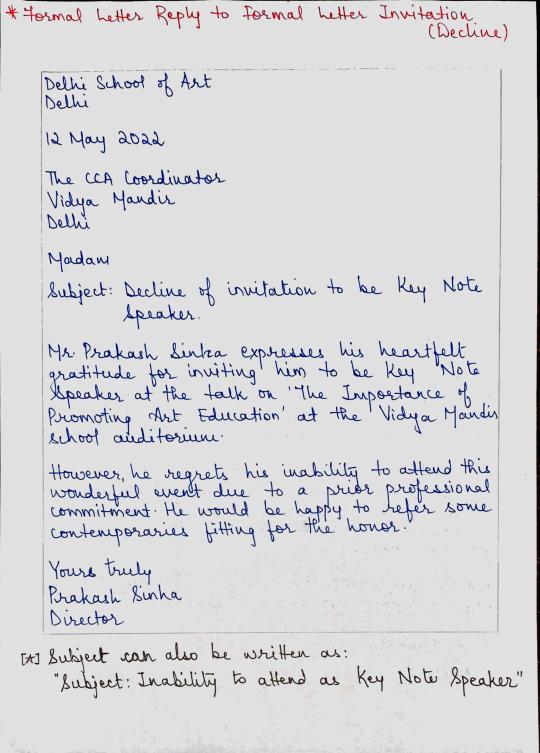 * Formal Letter Reply to Formal Letter Invitation
(Decline)
Delhi School of Art
Delhi
12 May 2022
The CCA Coordinator
Vidya Mandir
Delhi
Madam
Subject: Decline of invitation to be Key Note
Speaker.
Mr. Prakash Sinha expresses his heartfelt
gratitude for inviting him to be Key Note
Speaker at the talk on 'The Importance of
Promoting Art Education' at the Vidya Mandir
school auditorium.
However, he regrets his inability to attend this
wonderful event due to a prior professional
commitment. He would be happy to refer some
contemporaries fitting for the honor.
Yours truly
Prakash Sinha
Director
[*] Subject can also be written as:
"Subject: Inability to attend as Key Note Speaker"